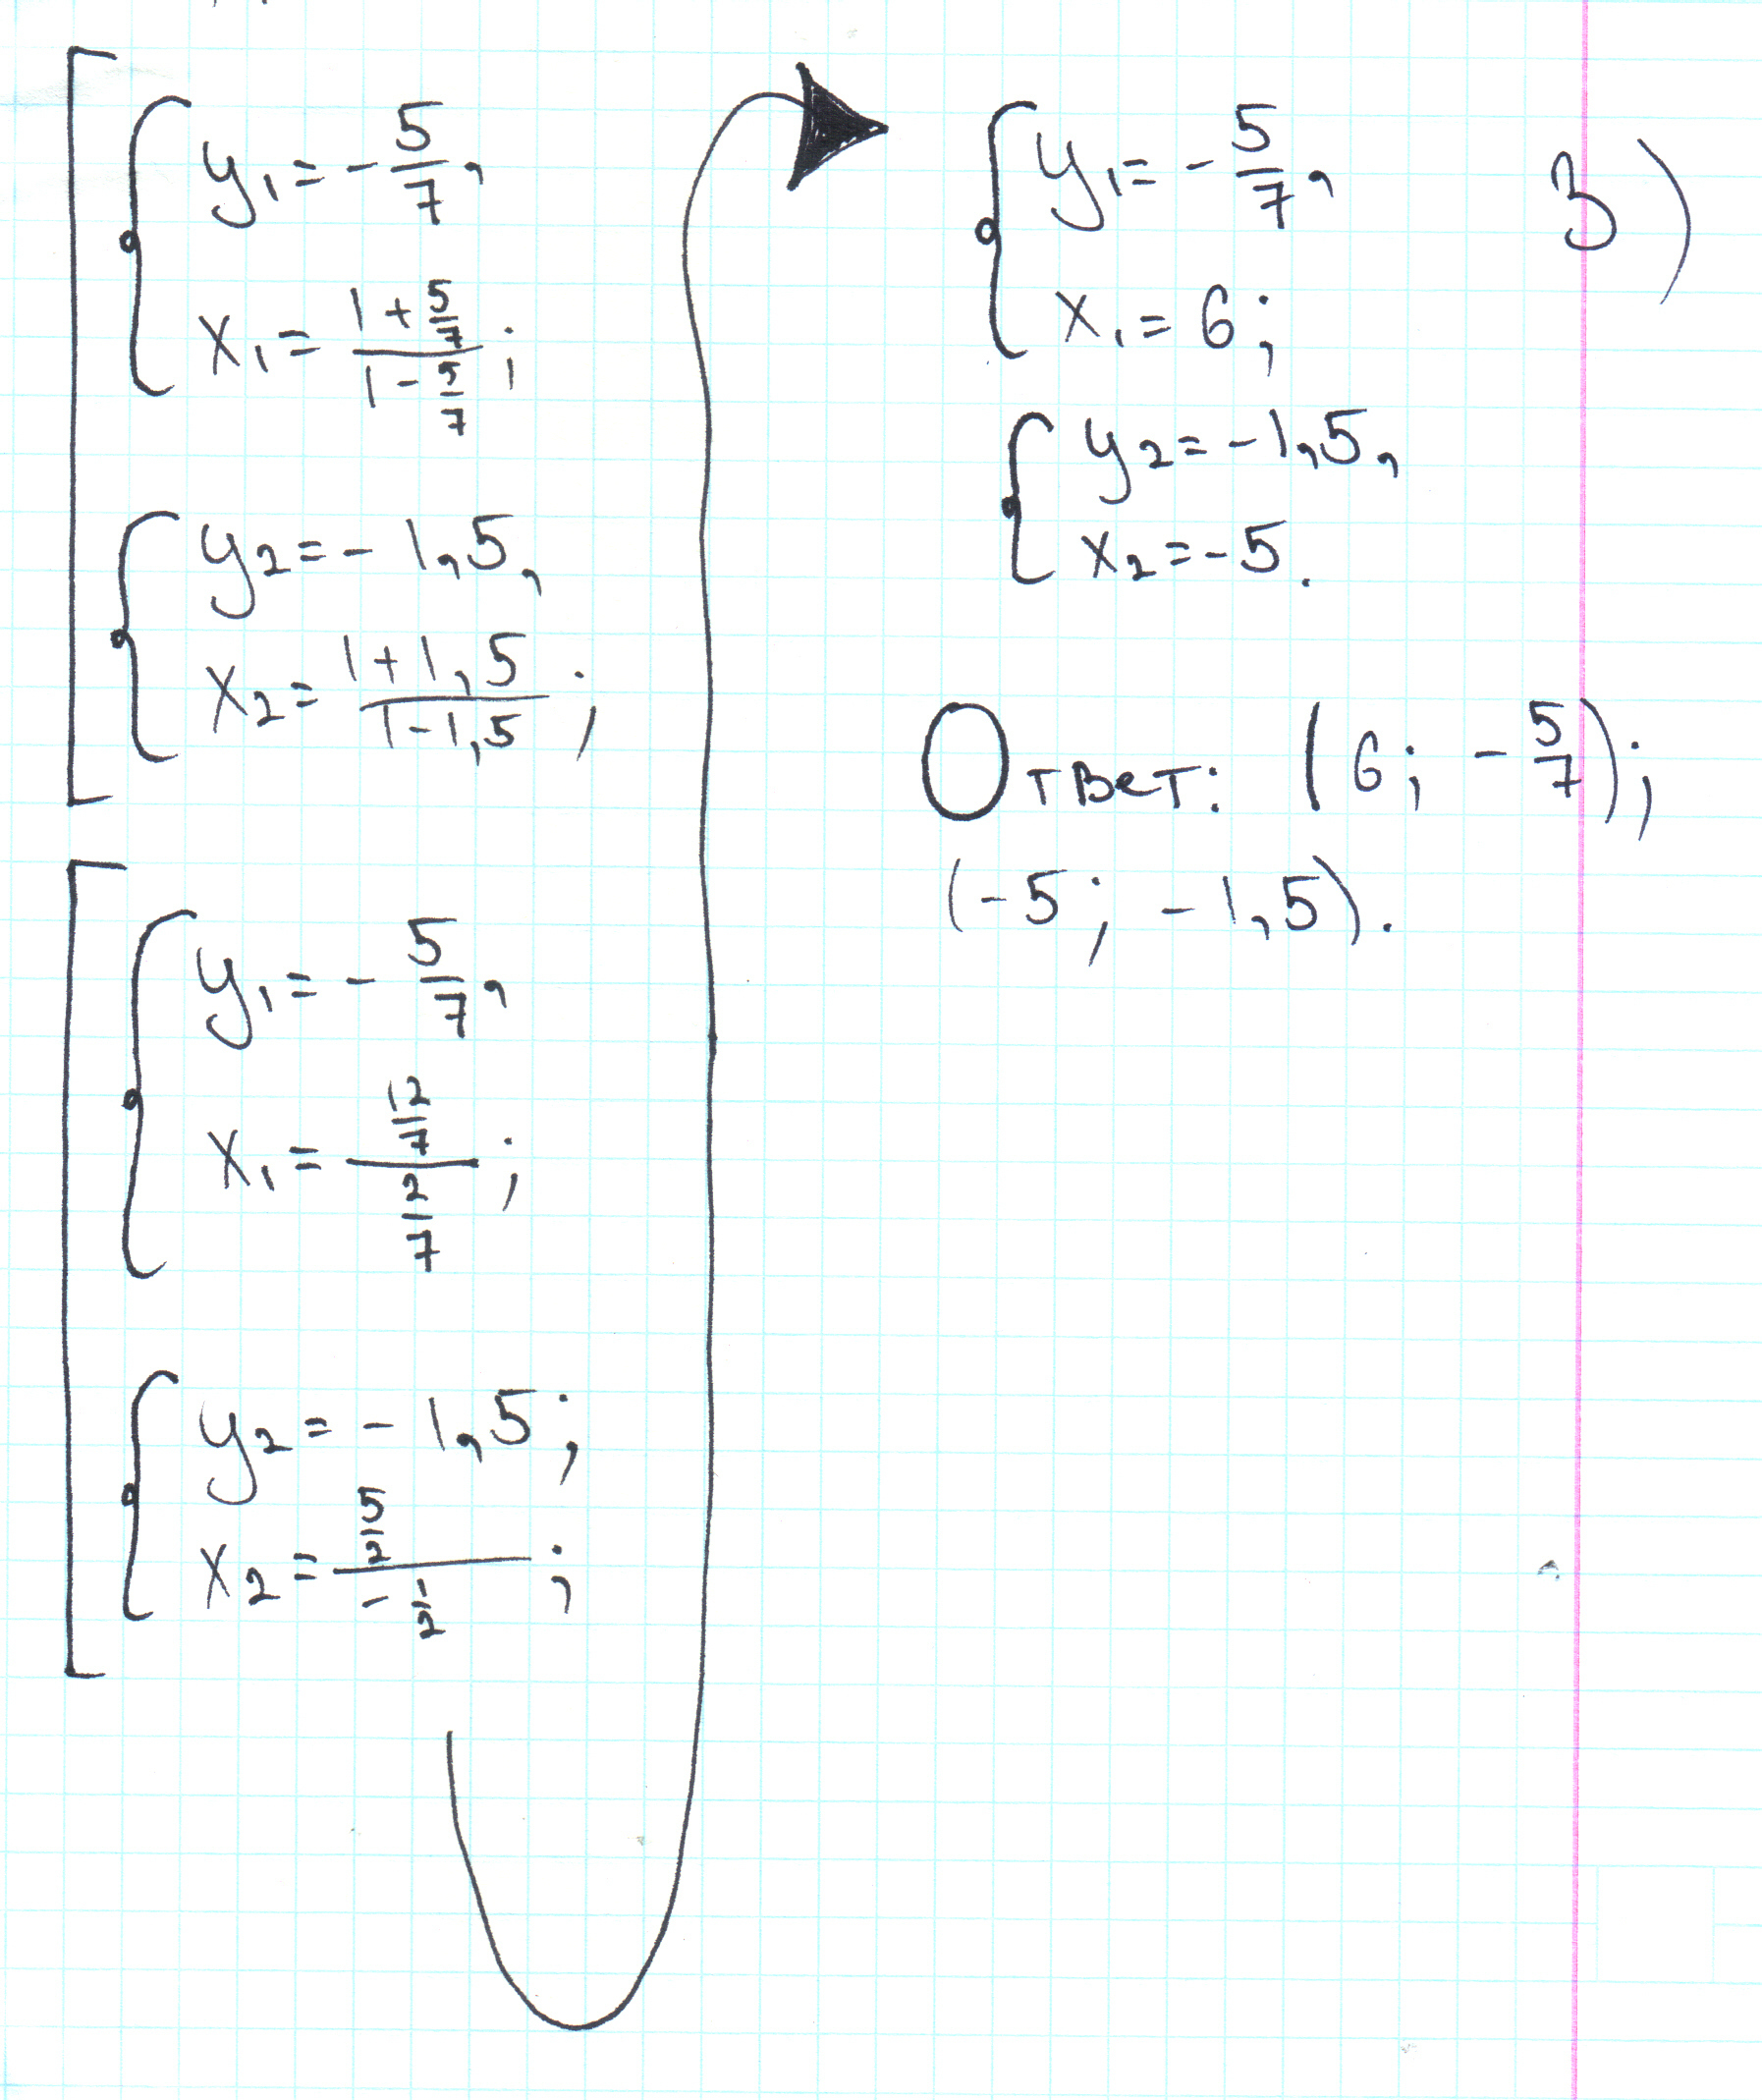 y₁ = - 5/7,
x₁ = (1 + 5/7)/(1 - 5/7);
y₂ = - 1,5,
x₂ = (1 + 1,5)/(1 - 1,5);
y₁ = - 5/7,
x₁ = (12/7)/(2/7);
y₂ = - 1,5;
x₂ = (5/2)/(- 1/2);
3)
y₁ = - 5/7,
x₁ = 6;
y₂ = - 1,5,
x₂ = - 5.
Ответ: (6; - 5/7);
(- 5; - 1,5).